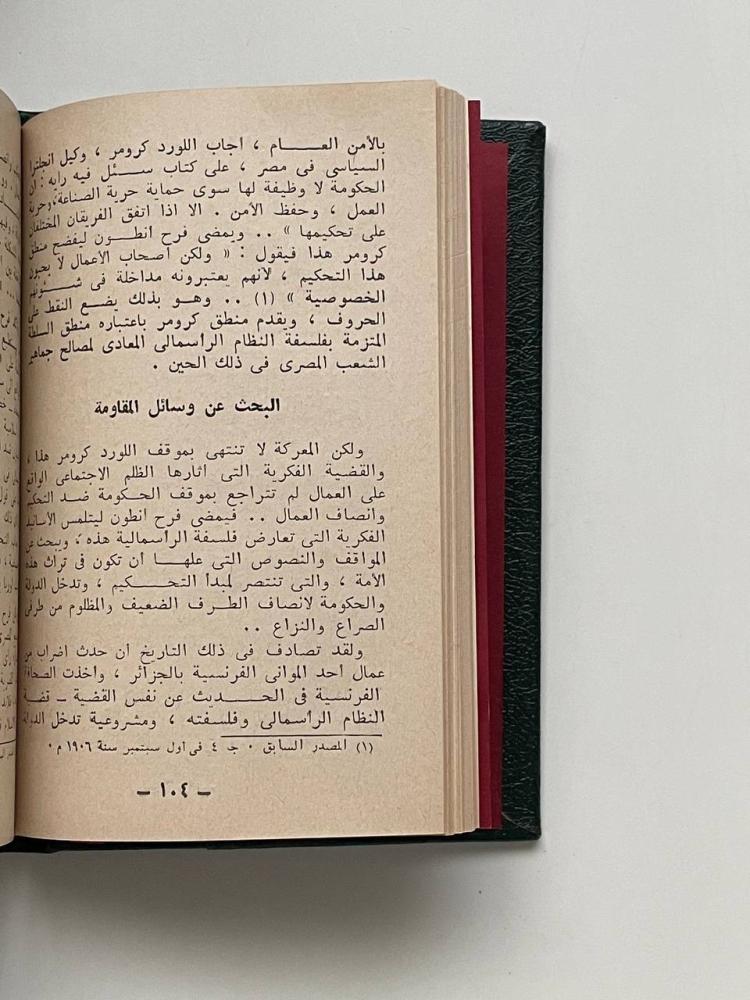 بالأمن العـــــام ، أجاب اللورد كرومر ، وكيل انجلترا
السياسى فى مصر ، على كتاب سـئـل فيه رأيه : ان
الحكومة لا وظيفة لها سوى حماية حرية الصناعة ، وحرية
العمل ، وحفظ الأمن . الا اذا اتفق الفريقان المختلفان
على تحكيمها » .. ويمضى فرح أنطـــون ليفضح منطق
كرومر هذا فيقول : « ولكن أصحاب الأعمال لا يحبون
هذا التحكيم ، لأنهم يعتبرونه مداخلة فى شــئونهم
الخصوصية » (١) .. وهـو بذلك يضـع النقط على
الحروف ، ويقدم منطق كرومر باعتباره منطق السلطة
المتزمة بفلسفة النظام الرأسمالى المعادى لمصالح جماهير
الشعب المصرى فى ذلك الحين .
البحث عن وسائل المقاومة
ولكن المعركة لا تنتهى بموقف اللورد كرومر هذا ،
والقضية الفكرية التى أثارها الظلم الاجتماعى الواقع
على العمال لم تتراجع بموقف الحـكومة ضـد التحكيم
وانصاف العمال .. فيمضى فرح أنطون ليتلمس الأسانيد
الفكرية التى تعارض فلسفة الرأسمالية هذه ، ويبحث عن
المواقف والنصوص التى علهـا أن تكون فى تراث هذه
الأمة ، والتى تنتصر لمبدأ التحـــكيم ، وتدخل الدولة
والحكومة لانصاف الطـرف الضعيف والمظلوم من طرفى
الصراع والنزاع ..
ولقد تصادف فى ذلك التاريخ أن حدث اضراب من
عمال أحد الموانى الفرنسية بالجزائر ، وأخذت الصحافة
الفرنسية فى الحـــديث عن نفس القضية ــ قضة
النظام الرأسمالى وفلسفته ، ومشروعية تدخل الدولة
(١) المصدر السابق . جـ ٤ فى أول سبتمبر سنة ١٩٠٦ م .
ــ ١٠٤ ــ